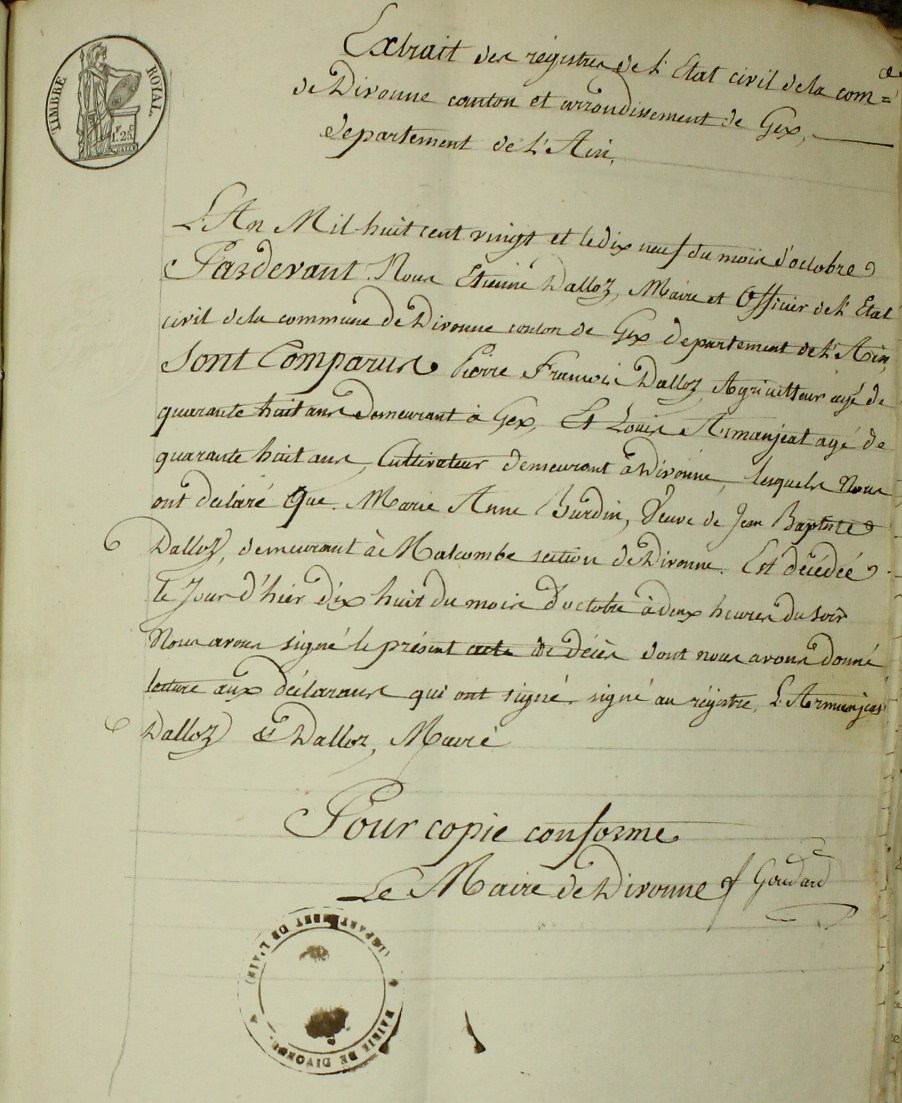 TIMBRE ROYAL.
1.25
Extrait des régistres de l'Etat civil de la com=
de Divonne canton et arrondissement de Gex,
departement de l'Ain.
L'An Mil huit cent vingt et le dix neuf du mois d'octobre
Pardevant Nous Etienne Dalloz, Maire et Officier de l'Etat
civil de la commune de Divonne canton de Gex departement de l'Ain,
Sont Comparus Pierre François Dalloz Agriculteur agé de
quarante huit ans demeurant à Gex, Et Louis Armanjeat agé de
quarante huit ans, Cultivateur demeurant à Divonne, lesquels Nous
ont déclaré Que Marie Anne Burdin, Veuve de Jean Baptiste
Dalloz, demeurant à Malcombe section de Divonne. Est décédée
le Jour d'hier dix huit du mois d'octobre à deux heures du soir
Nous avons signé le présent acte de décès dont nous avons donné
lecture aux déclarans qui ont signé. signé au régistre, L. Armanjeat
Dalloz et Dalloz, Maire
Pour copie conforme
Le Maire de Divonne
Goudard
MAIRIE DE DIVONNE
(DEPARTEMENT DE L'AIN)